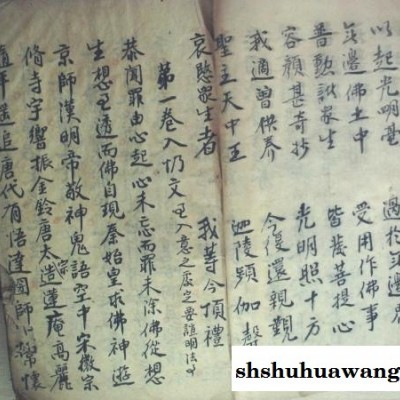 以起光明臺 過於无邊界
无邊佛土中 受用作佛事
普勸諸衆生 皆發菩提心
容顏甚奇妙 光明照十方
我適曾供養 今復還親覲
聖主天中王 迦陵頻伽聲
哀愍衆生者 我等今頂禮
第一卷入忏文 入意之處之要證明法
恭聞罪由心起心未忘而罪未除佛從想
生想透而佛自現秦始皇求佛神遊
京師漢明帝敬神鬼語空中宋徽宗
脩寺宇響振金鈴唐太宗造蓮庵高麗
年遙追唐代有悟達國師心常懷
shshuhuawang